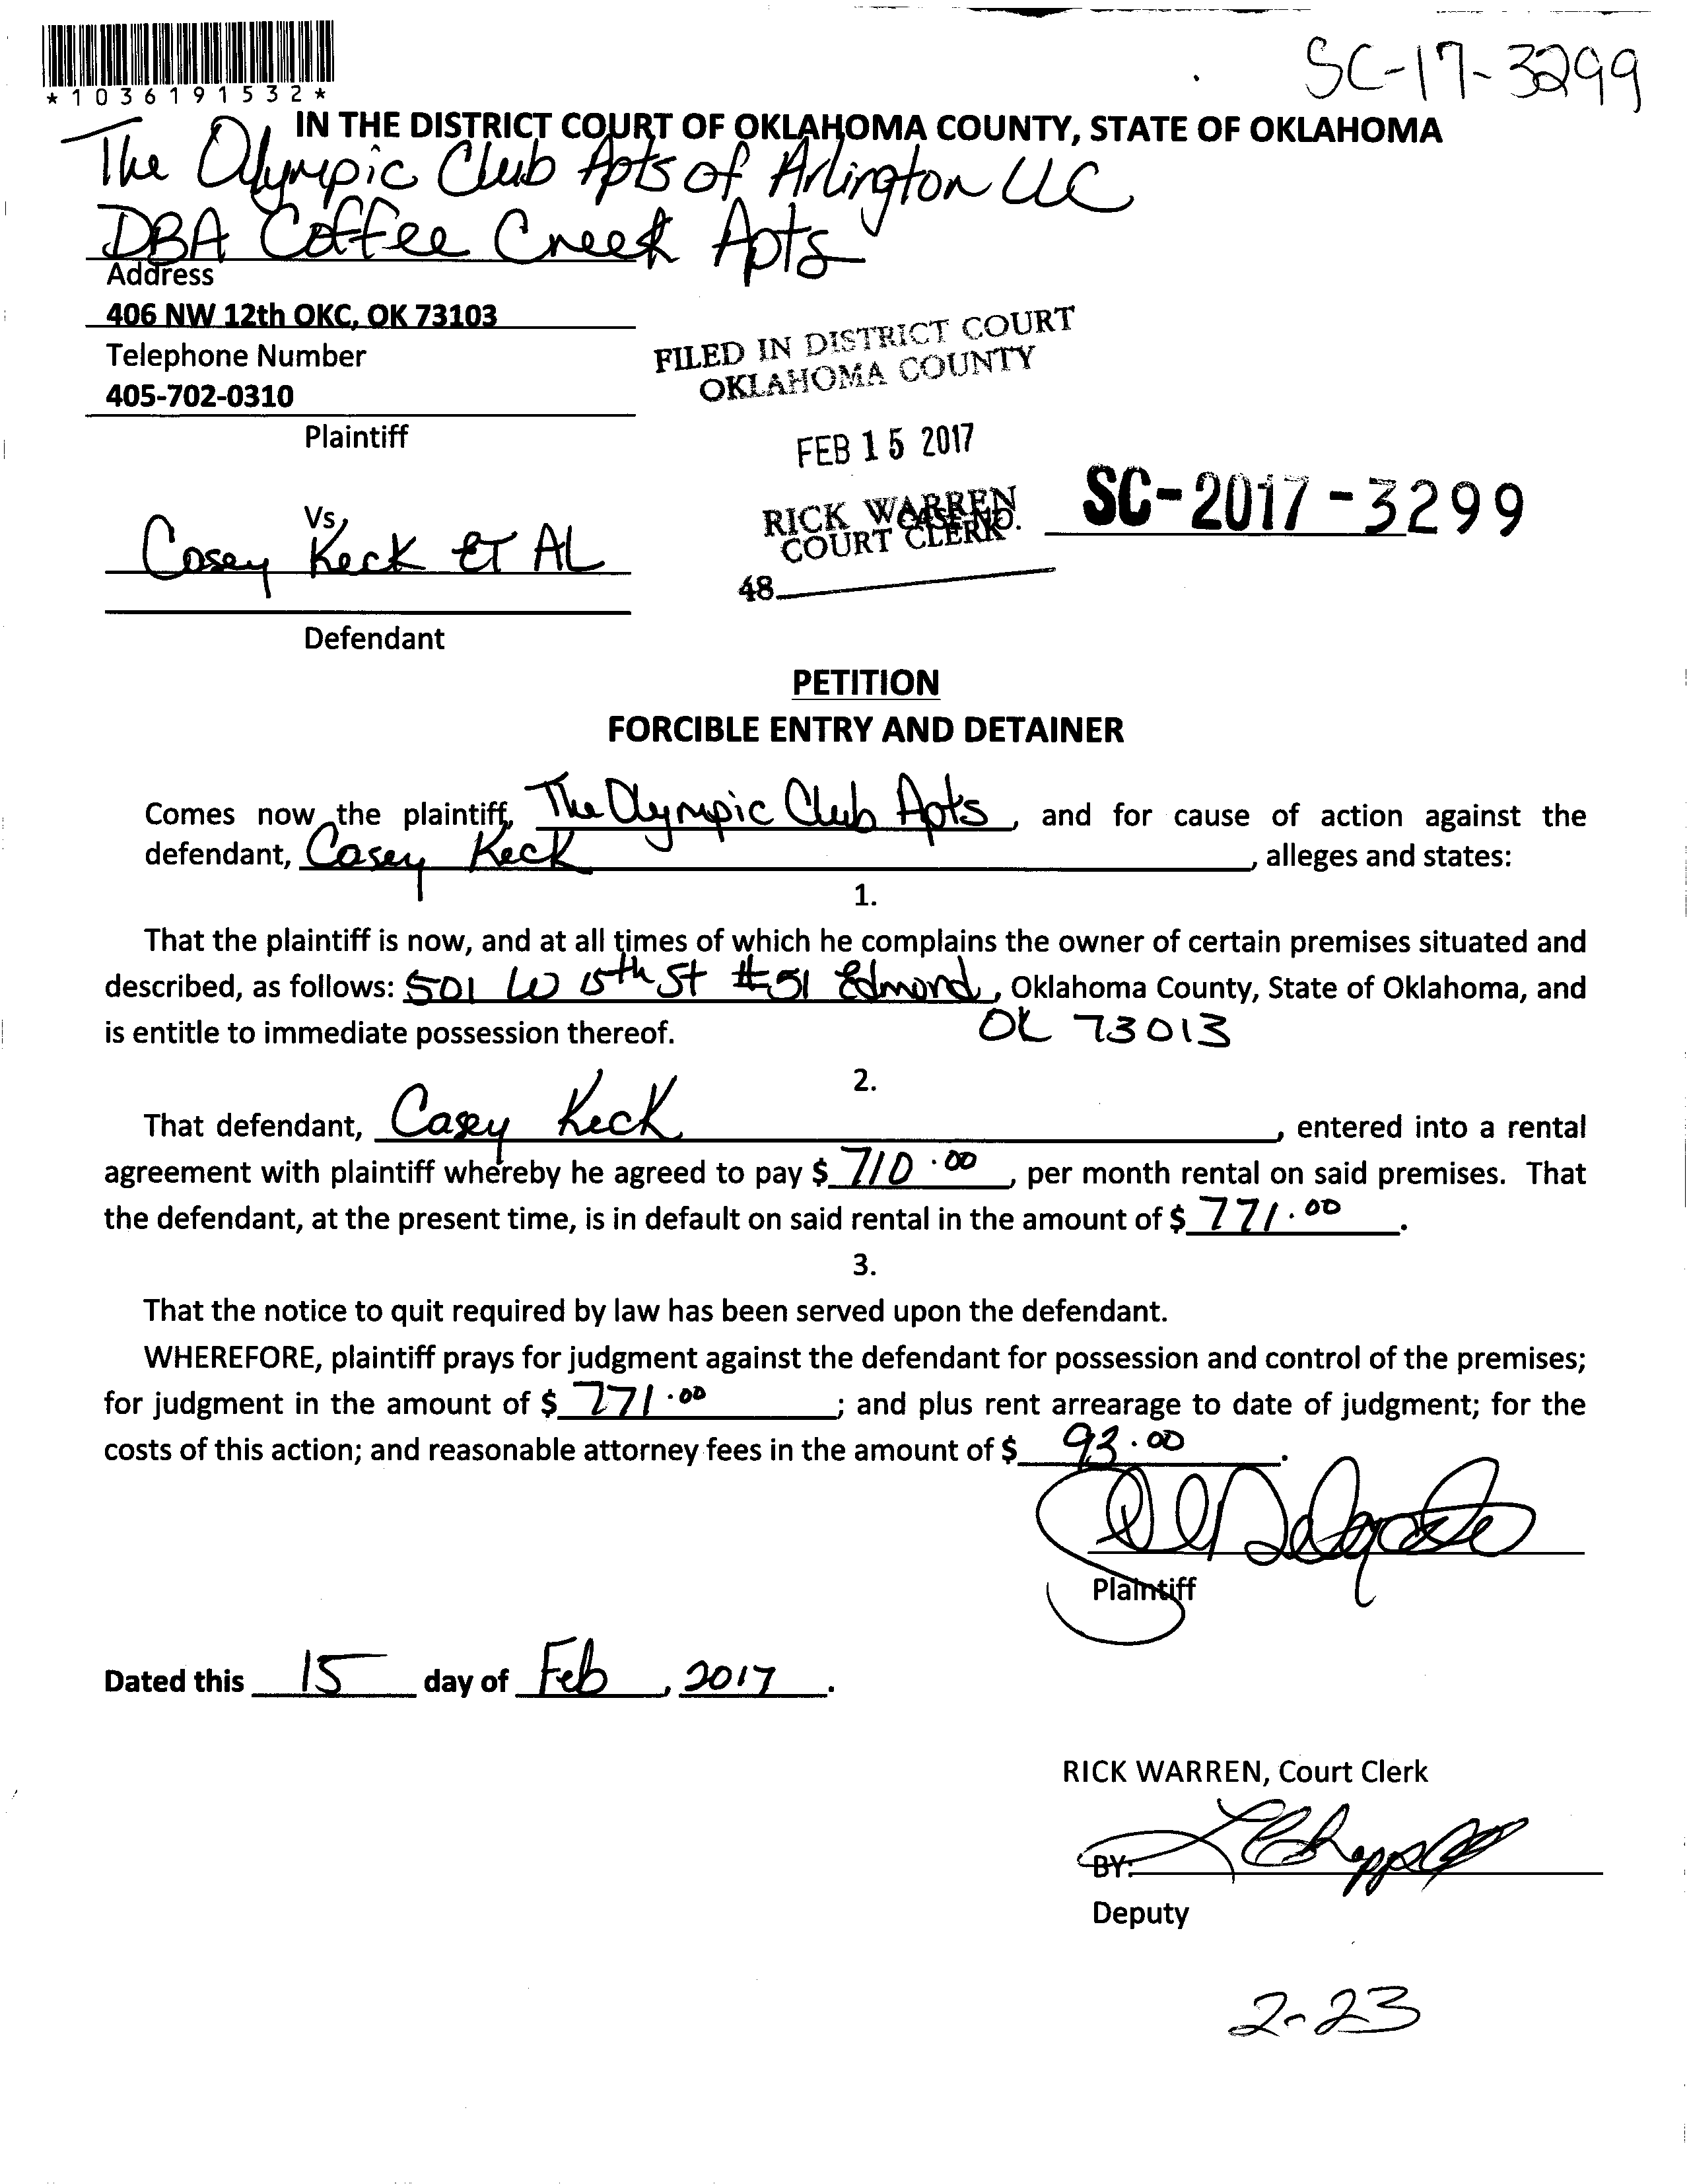 *1036191532*
SC-17-3299
IN THE DISTRICT COURT OF OKLAHOMA COUNTY, STATE OF OKLAHOMA
The Olympic Club Apts of Arlington LLC
DBA Coffee Creek Apts
Address
406 NW 12th OKC, OK 73103
Telephone Number
405-702-0310
Plaintiff
FILED IN DISTRICT COURT
OKLAHOMA COUNTY
FEB 15 2017
RICK WARREN
COURT CLERK
48
CASE NO. SC-2017-3299
Vs,
Casey Keck ET AL
Defendant
PETITION
FORCIBLE ENTRY AND DETAINER
Comes now the plaintiff, The Olympic Club Apts, and for cause of action against the
defendant, Casey Keck, alleges and states:
1.
That the plaintiff is now, and at all times of which he complains the owner of certain premises situated and
described, as follows: 501 W 15th St #51 Edmond, Oklahoma County, State of Oklahoma, and
OK 73013
is entitle to immediate possession thereof.
2.
That defendant, Casey Keck, entered into a rental
agreement with plaintiff whereby he agreed to pay $ 710.00, per month rental on said premises. That
the defendant, at the present time, is in default on said rental in the amount of $ 771.00.
3.
That the notice to quit required by law has been served upon the defendant.
WHEREFORE, plaintiff prays for judgment against the defendant for possession and control of the premises;
for judgment in the amount of $ 771.00; and plus rent arrearage to date of judgment; for the
costs of this action; and reasonable attorney fees in the amount of $ 93.00.
Plaintiff
Dated this 15 day of Feb, 2017.
RICK WARREN, Court Clerk
BY:
Deputy
2-23